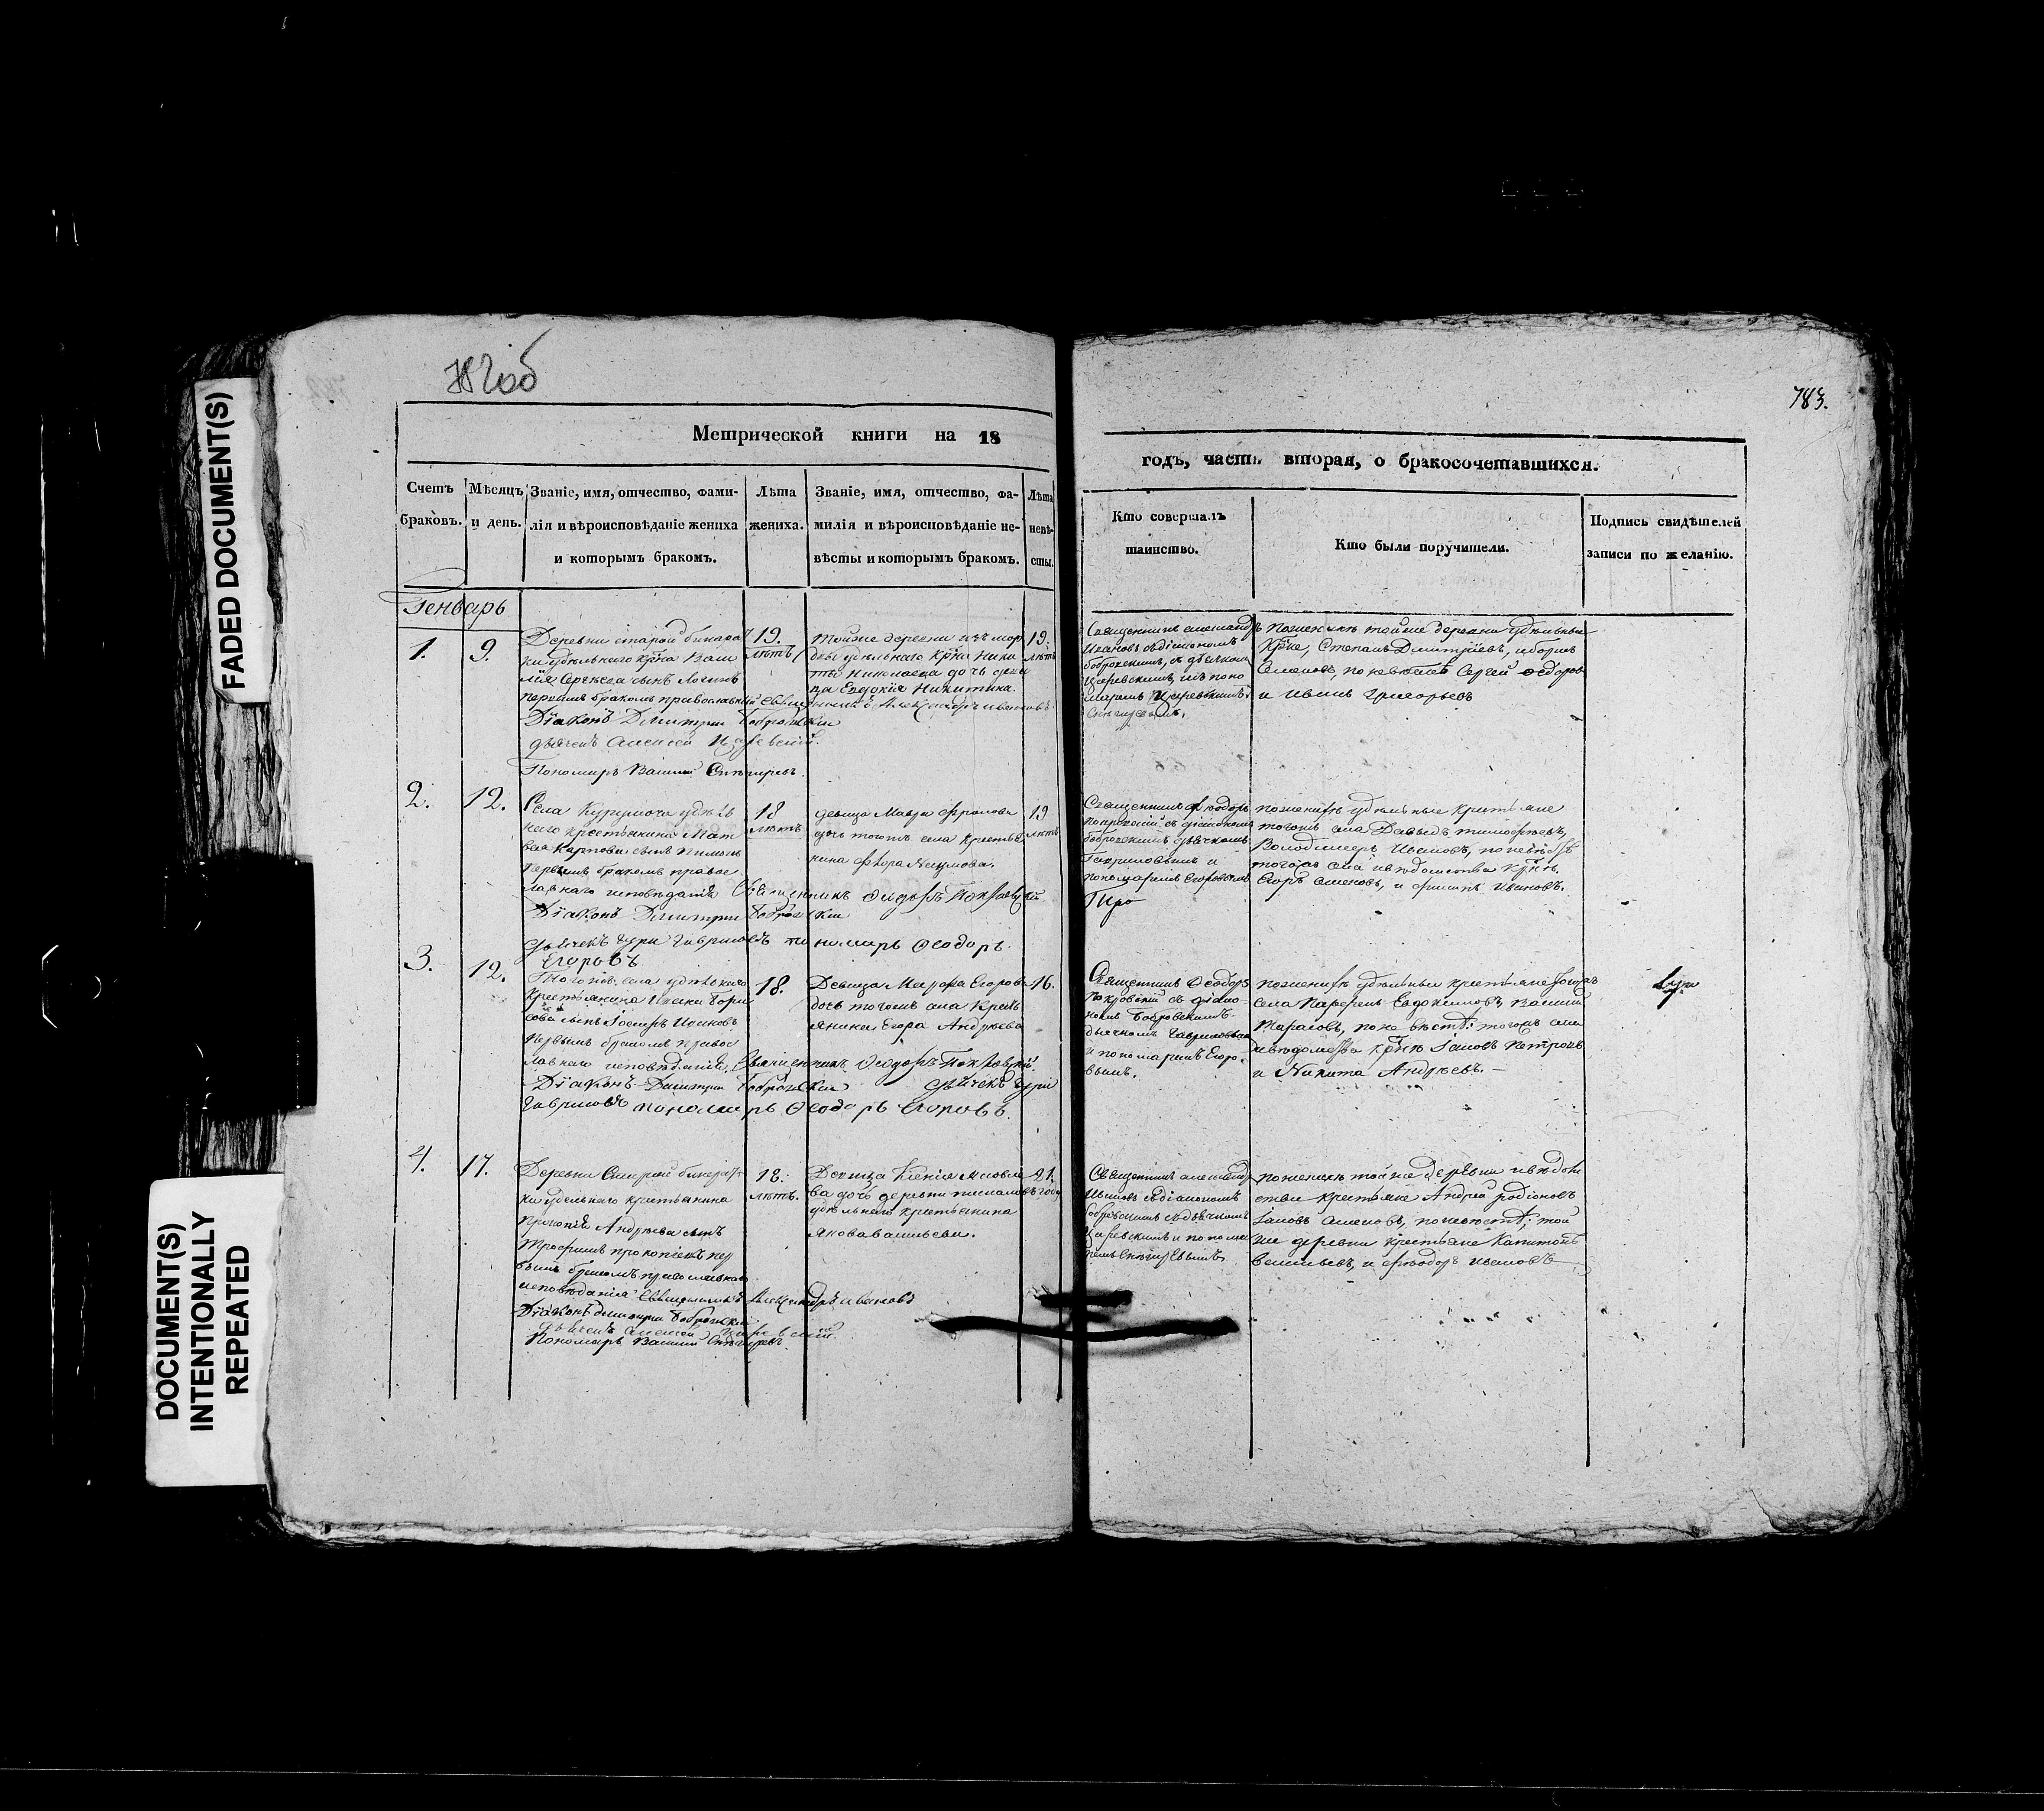 FADED DOCUMENT(S)
DOCUMENT(S)
INTENTIONALLY
REPEATED
783.
Метрической книги на 18
годъ, часть вторая, о бракосочетавшихся.
Счетъ
браковъ.
Мѣсяцъ
и день.
Званіе, имя, отчество, фами-
лія и вѣроисповѣданіе жениха
и которымъ бракомъ.
Лѣта
жениха.
Званіе, имя, отчество, фа-
милія и вѣроисповѣданіе не-
вѣсты и которымъ бракомъ.
Лѣта
невѣ-
сты.
Кто совершалъ
таинство.
Кто были поручители.
Подпись свидѣтелей
записи по желанію.
Генварь
1.
9.
Деревни старой бинарат
ки удѣльнаго крна Васи
лія Сергѣева сынъ
первымъ бракомъ православный Священникъ Александръ Ивановъ
Діаконъ Димитрій Бобровскій
дьячекъ Алексей Царевскій.
Пономарь Василій Снѣгиревъ.
19.
лѣтъ
тойже деревни изъ мор
двы удѣльнаго крна Ники
ты Николаева дочь деви
ца Евдокія Никитина.
19.
лѣтъ
Священникъ александръ
Ивановъ съ діакономъ
бобровскимъ, съ дьячкомъ
Царевскимъ и поно
маремъ
Снѣгиревымъ.
По женихѣ тойже деревни удѣльные
Крне, Степанъ Димитріевъ, иборисъ
Семеновъ, по невѣстѣ Сергей Федоровъ
и Иванъ Григорьевъ
2.
12.
Села Курумоча удѣль
наго крестьянина Мат
вея Карпова сынъ
первымъ бракомъ правос
лавнаго исповѣданія Священникъ Феодоръ Покровскій
Діаконъ Димитрій Бобровскій
Дьячекъ Гурій Гавриловъ пономарь Феодоръ
Егоровъ
18
лѣтъ
девица Мавра Фролова
дочь тогожъ села крестья
нина Фрола Наумова.
19
лѣтъ
Священникъ Феодоръ
покровскій съ діакономъ
бобровскимъ дьячкомъ
Гавриловымъ и
пономаремъ Егоровымъ
по женихѣ удѣльные крестьяне
тогожъ села Давыдъ тимофѣевъ,
Володимеръ Ивановъ, по невѣстѣ
тогожъ села иведомства крне.
Егоръ Семеновъ, и Филипъ Ивановъ.
3.
12.
Тогожъ села удѣльнаго
крестьянина Ивана Бори
сова сынъ Іосифъ Ивановъ
первымъ бракомъ правос
лавнаго исповѣданія, Священникъ Феодоръ Покровскій.
Діаконъ Димитрій Бобровскій Дьячекъ Гурій
Гавриловъ пономарь Феодоръ Егоровъ.
18.
Девица Марфа Егорова
дочь тогожъ села Кресть
янина Егора Андрѣева
16.
Священникъ Феодоръ
Покровскій съ діако
номъ Бобровскимъ.
дьячкомъ Гавриловымъ
и пономаремъ Егоро-
вымъ.
по женихѣ удѣльные крестьяне тогожъ
села Парфенъ Евдокимовъ Василій
Тарасовъ, по невѣстѣ: тогожъ села
иведомства крне Іаковъ Петровъ
и Никита Андрѣевъ.
4.
17.
Деревни Старой бинарат-
ки удѣльнаго крестьянина
Прокопія Андрѣева сынъ
Трофимъ прокопіевъ пер
вымъ бракомъ православнаго
исповѣданія Священникъ Александръ Ивановъ
Діаконъ Димитрій Бобровскій
Дьячекъ Алексей Царевскій.
Пономарь Василій Снѣгиревъ.
18.
лѣтъ.
Девица Ксенія Яковле
ва дочь деревни
удѣльнаго крестьянина
Якова васильева.
21.
годъ
Священникъ александръ
Ивановъ съ діакономъ
бобровскимъ съ дьячкомъ
Царевскимъ и понома
ремъ Снѣгиревымъ
по женихѣ тойже деревни иведом
ства крестьяне Андрей родіоновъ
Іаковъ Семеновъ, по невѣстѣ; той
же деревни крестьяне Капитонъ
Васильевъ, и Феодоръ Ивановъ